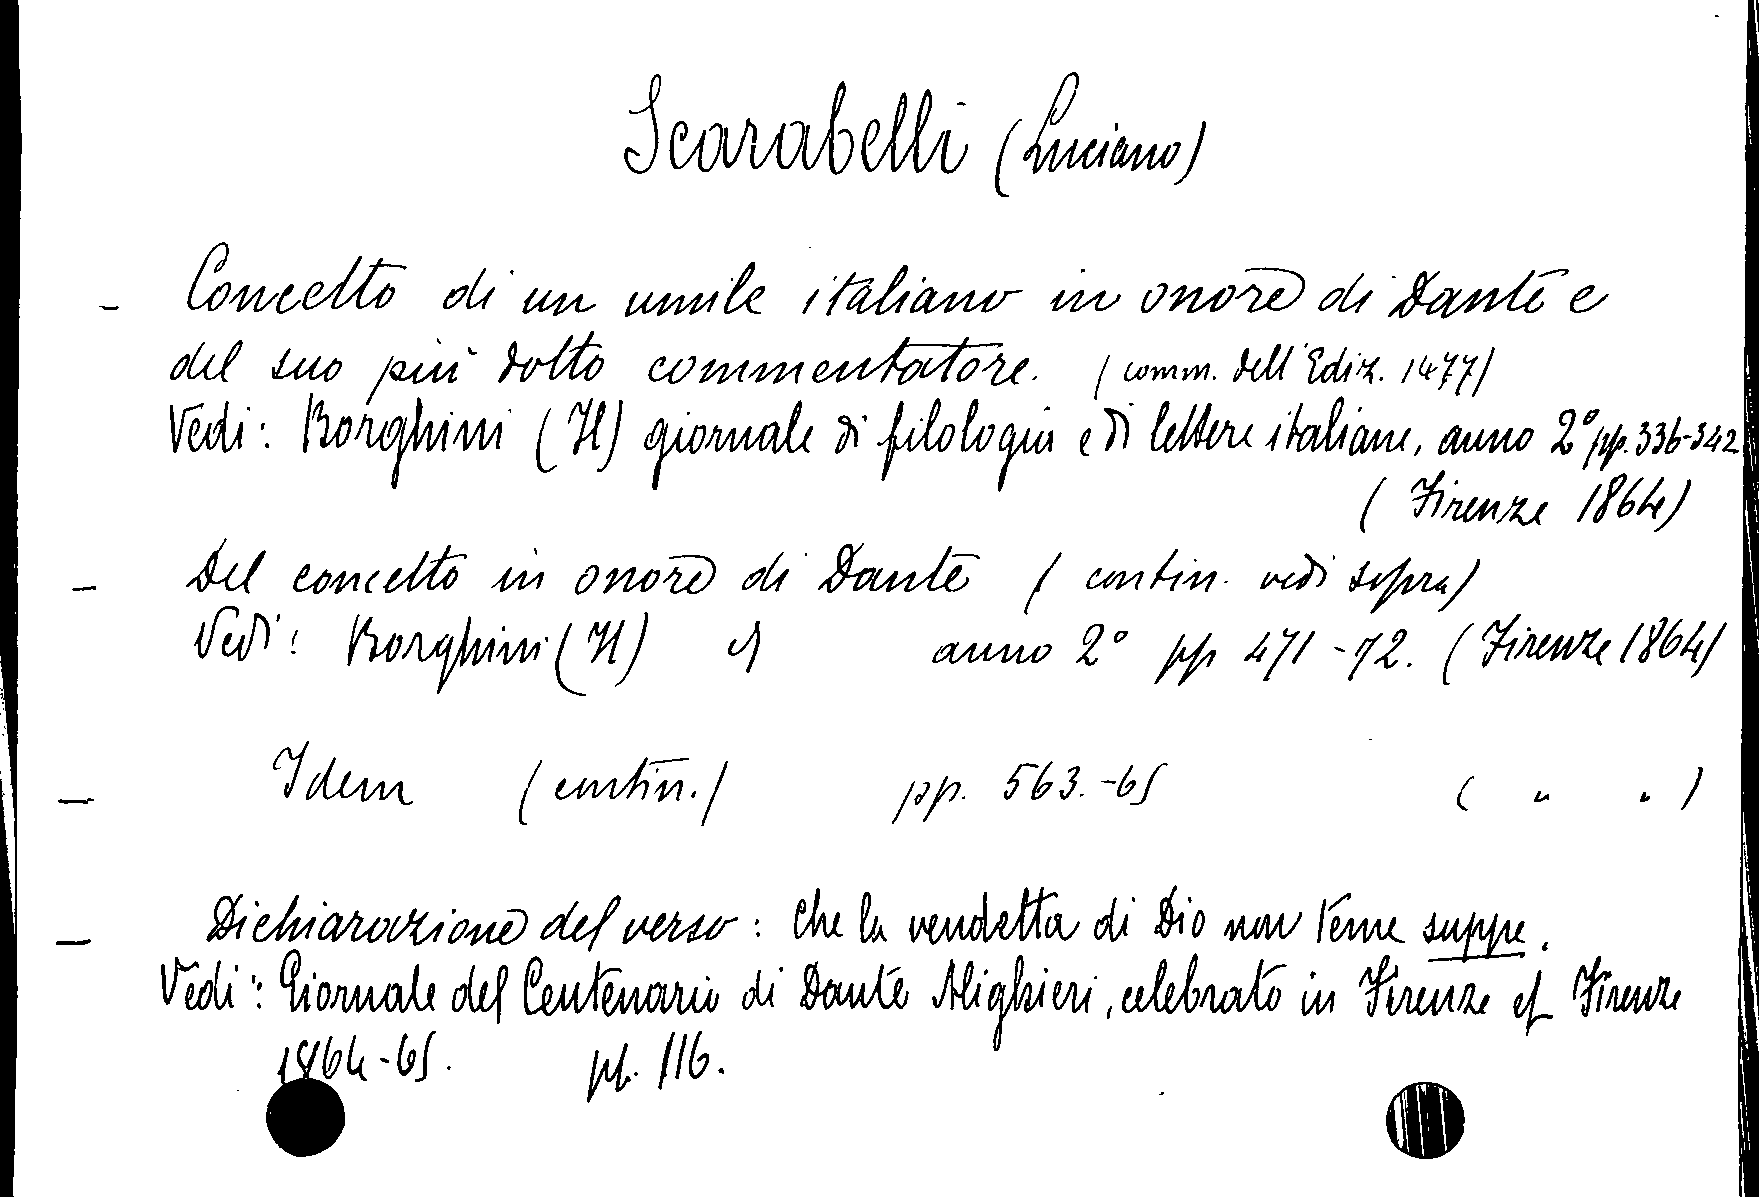 Scarabelli (Luciano)
- Concetto di un umile italiano in onore di Dante e
del suo più dotto commentatore. (comm. dell'Ediz. 1477)
Vedi: Borghini (Il) giornale di filologia e di lettere italiane, anno 2° pp. 336-342
(Firenze 1864)
- Del concetto in onore di Dante (contin. vedi sopra)
Vedi: Borghini (Il) anno 2° pp 471-72. (Firenze 1864)
- Idem (contin.) pp. 563.-65 ( " " )
- Dichiarazione del verso: Che la vendetta di Dio non teme suppe.
Vedi: Giornale del Centenario di Dante Alighieri, celebrato in Firenze Firenze
1864-65. pp. 116.